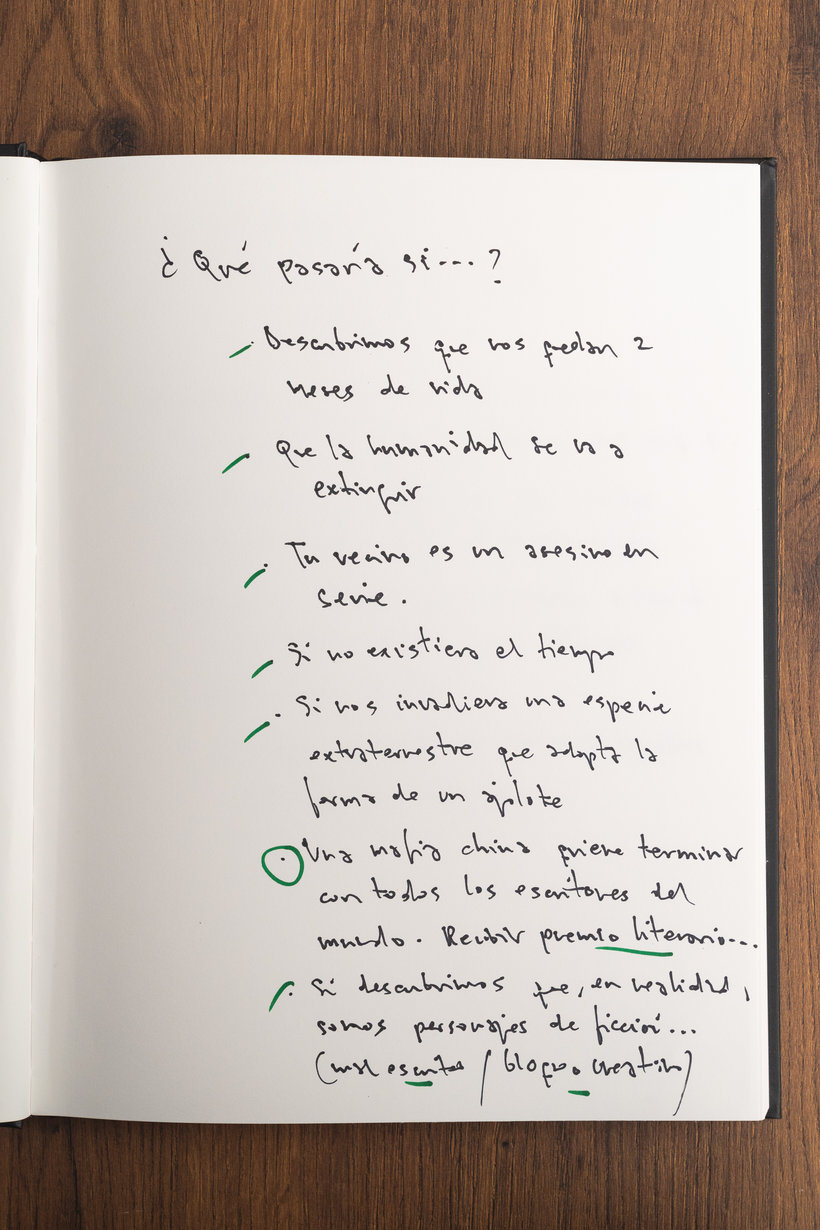 ¿Qué pasaría si...?
Descubrimos que nos quedan 2
meses de vida
Que la humanidad se va a
extinguir
Tu vecino es un asesino en
serie.
Si no existiera el tiempo
Si nos invadiera una especie
extraterrestre que adopta la
forma de un ajolote
Una mafia china quiere terminar
con todos los escritores del
mundo. Recibir premio literario...
Si descubrimos que, en realidad,
somos personajes de ficción...
(mal escritos / bloqueo creativo)